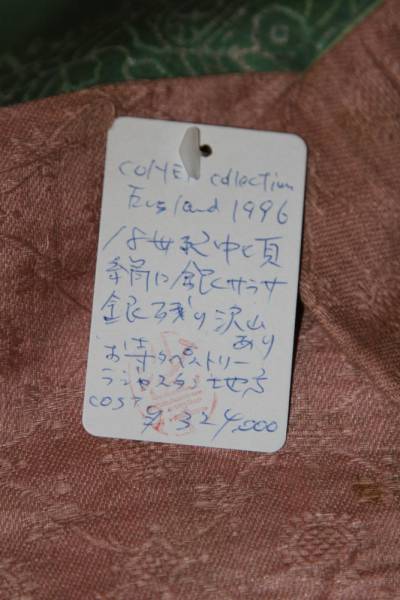 COHEN collection
England 1996
18世紀中頃
絹に銀サラサ
銀残り沢山
あり
お寺タペストリー
ラジャスタン地方
cost
¥324,000